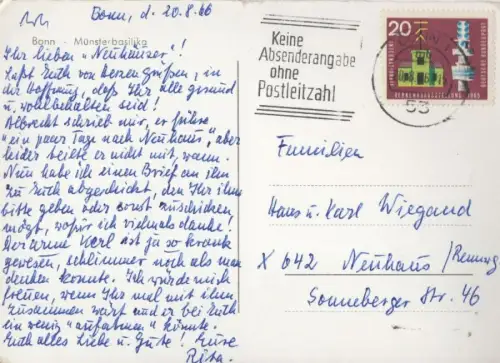 Bonn, d. 20.8.66
Bonn - Münsterbasilika
Ihr lieben "Neuhäuser"!
Laßt Euch von Herzen grüßen, in
der Hoffnung, daß Ihr alle gesund
u. wohlbehalten seid!
Albrecht schrieb mir, er führe
"ein paar Tage nach Neuhaus", aber
leider teilte er nicht mit, wann.
Nun habe ich einen Brief an ihn
zu Euch abgeschickt, den Ihr ihm
bitte geben oder sonst zuschicken
mögt, wofür ich vielmals danke!
Der arme Kerl ist ja so krank
gewesen, schlimmer noch als man
denken konnte. Ich würde mich
freuen, wenn Ihr mal mit ihm
zusammen wart und er bei Euch
ein wenig "auftanken" könnte.
Euch alles Liebe u. Gute! Eure
Rita.
Keine
Absenderangabe
ohne
Postleitzahl
20
DEUTSCHE BUNDESPOST
53
Familien
Hans u. Karl Wiegand
X 642 Neuhaus/Rennweg
Sonneberger Str. 46